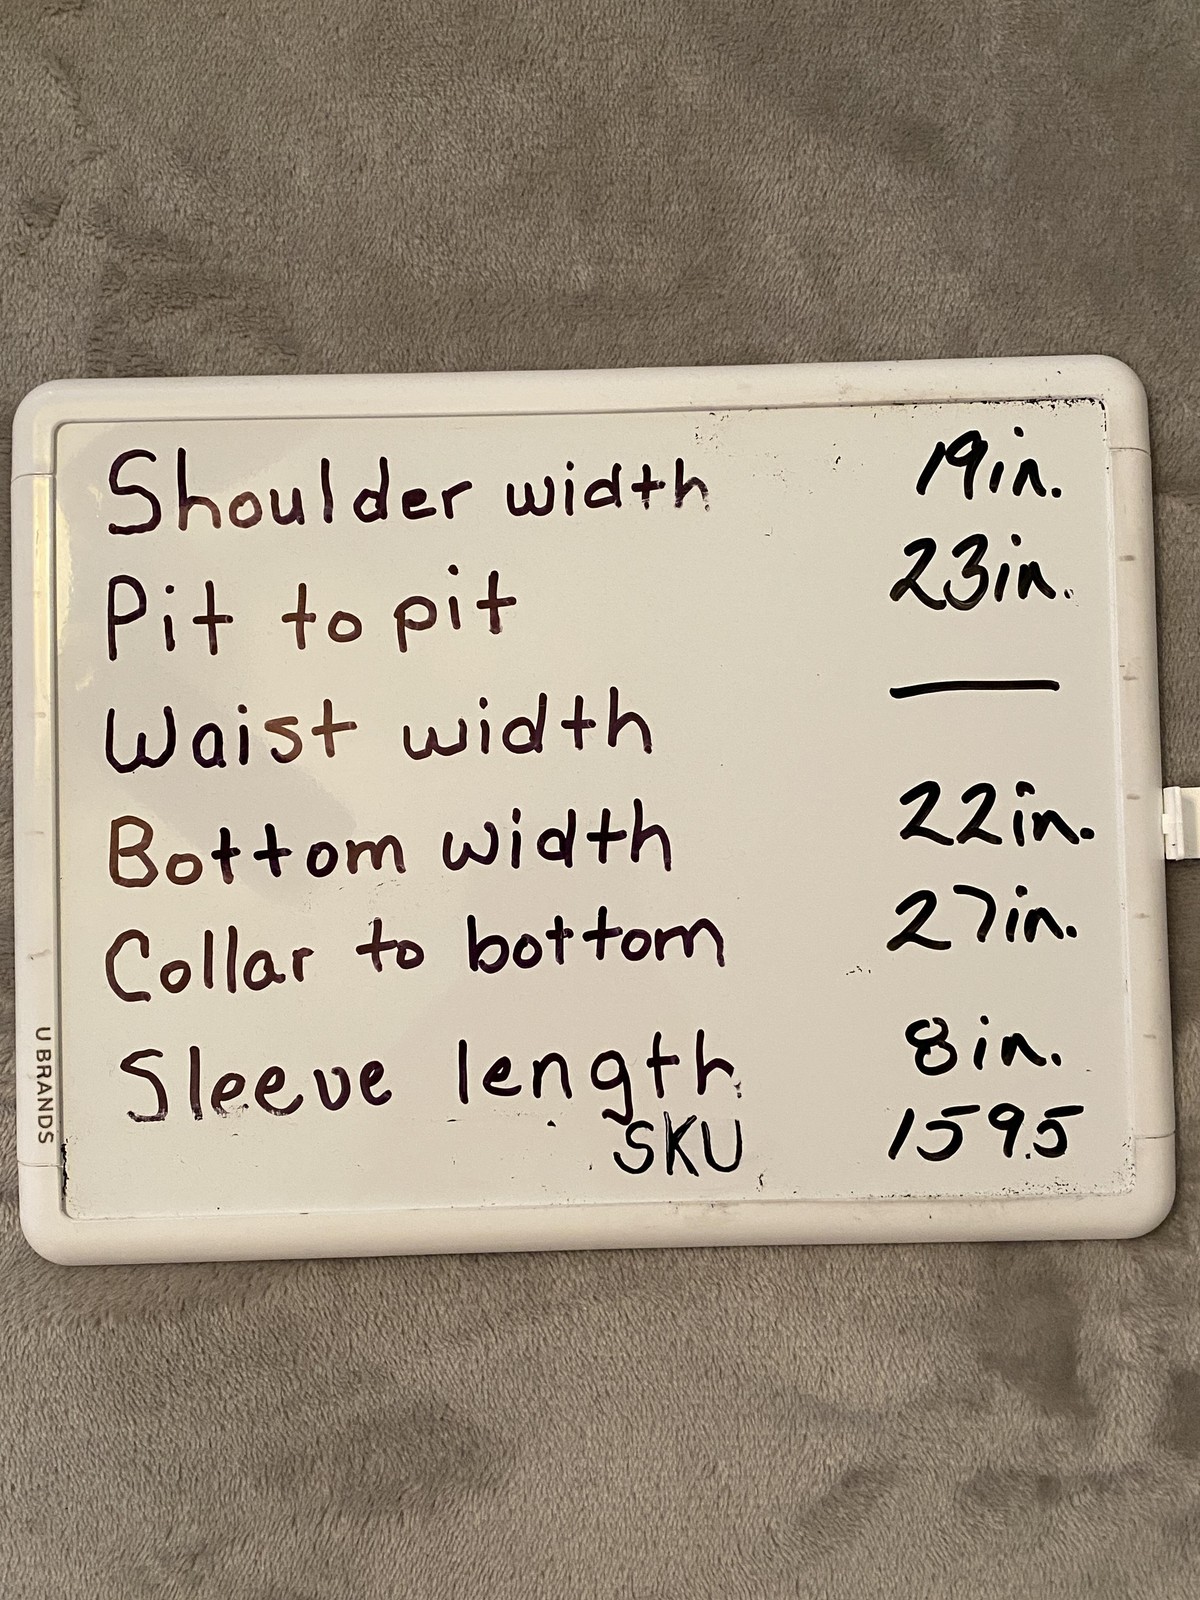 Shoulder width 19in.
Pit to pit 23in.
Waist width —
Bottom width 22in.
Collar to bottom 27in.
Sleeve length 8in.
SKU 1595
U BRANDS